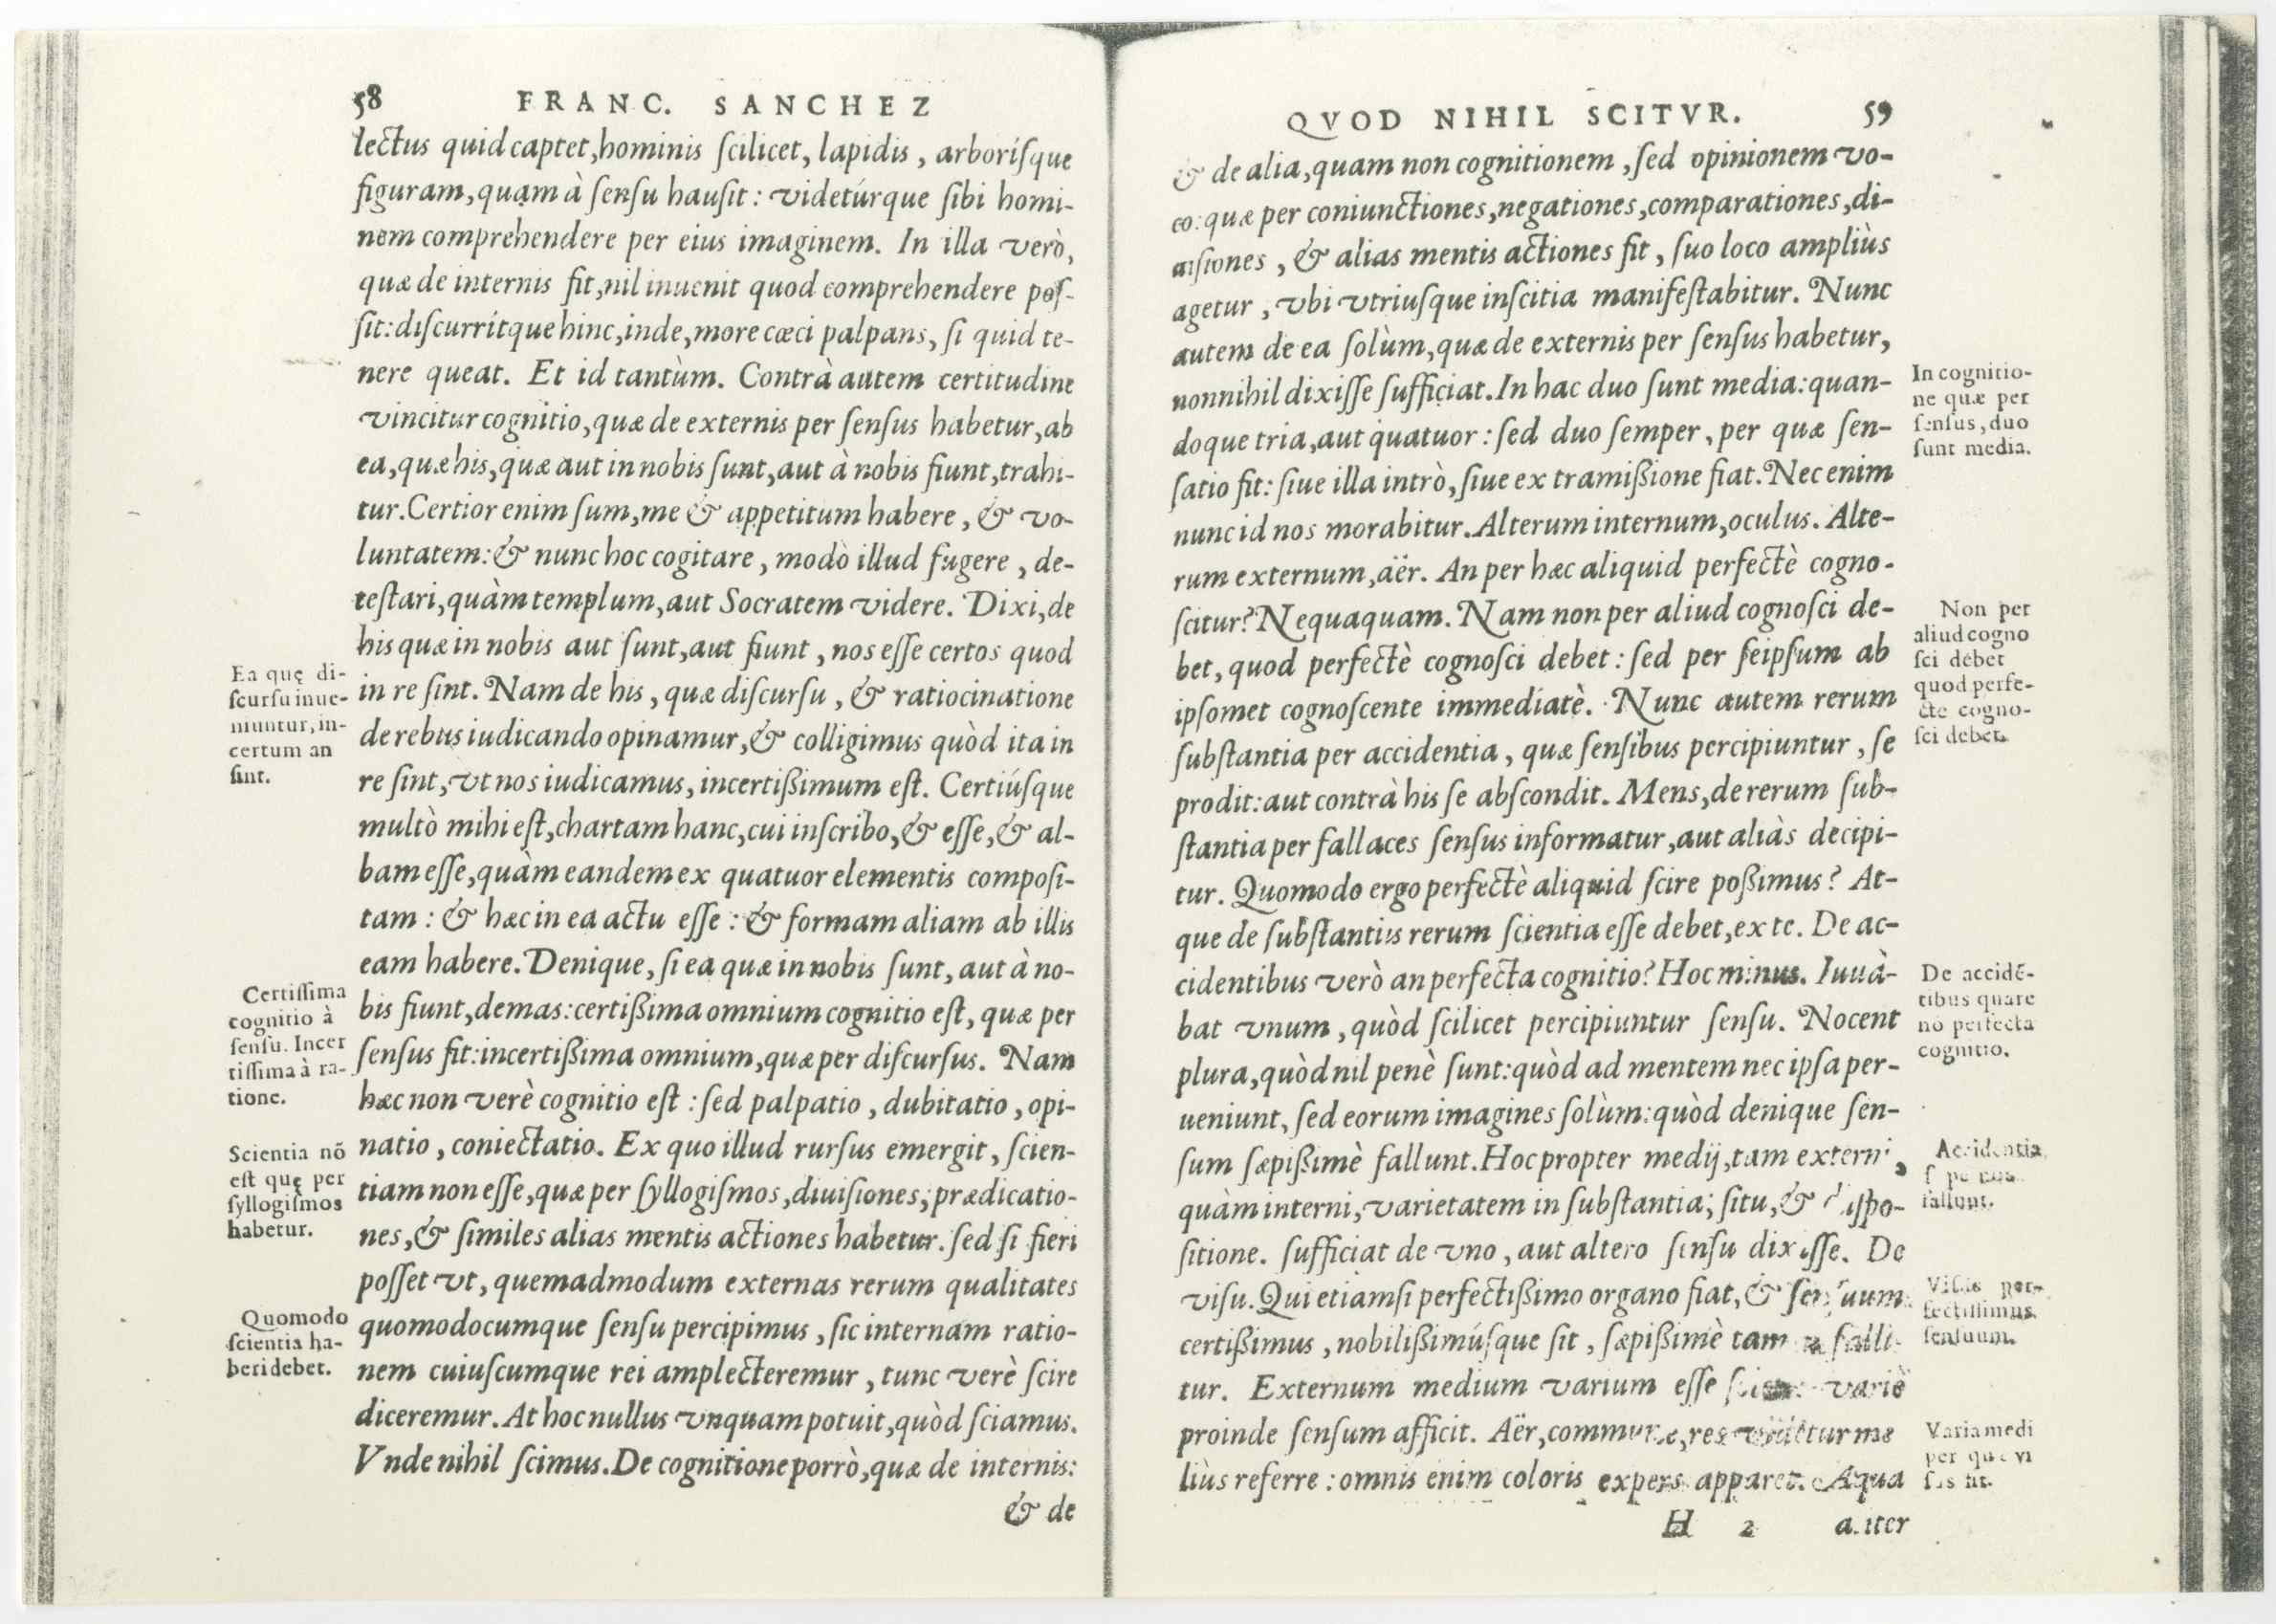 58 FRANC. SANCHEZ
lectus quid captet, hominis ſcilicet, lapidis, arboríſque
figuram, quam à ſenſu hauſit: videtúrque ſibi homi-
nem comprehendere per eius imaginem. In illa verò,
quæ de internis fit, nil inuenit quod comprehendere poſ-
ſit: diſcurrítque hinc, inde, more cæci palpans, ſi quid te-
nere queat. Et id tantùm. Contrà autem certitudine
vincitur cognitio, quæ de externis per ſenſus habetur, ab
ea, quæ his, quæ aut in nobis ſunt, aut à nobis fiunt, trahi-
tur. Certior enim ſum, me & appetitum habere, & vo-
luntatem: & nunc hoc cogitare, modò illud fugere, de-
teſtari, quàm templum, aut Socratem videre. Dixi, de
his quæ in nobis aut ſunt, aut fiunt, nos eſſe certos quod
in re ſint. Nam de his, quæ diſcurſu, & ratiocinatione
de rebus iudicando opinamur, & colligimus quòd ita in
re ſint, vt nos iudicamus, incertißimum eſt. Certiúſque
multò mihi eſt, chartam hanc, cui inſcribo, & eſſe, & al-
bam eſſe, quàm eandem ex quatuor elementis compoſi-
tam: & hæc in ea actu eſſe: & formam aliam ab illis
eam habere. Denique, ſi ea quæ in nobis ſunt, aut à no-
bis fiunt, demas: certißima omnium cognitio eſt, quæ per
ſenſus fit: incertißima omnium, quæ per diſcurſus. Nam
hæc non verè cognitio eſt: ſed palpatio, dubitatio, opi-
natio, coniectatio. Ex quo illud rurſus emergit, ſcien-
tiam non eſſe, quæ per ſyllogiſmos, diuiſiones, prædicatio-
nes, & ſimiles alias mentis actiones habetur. ſed ſi fieri
poſſet vt, quemadmodum externas rerum qualitates
quomodocumque ſenſu percipimus, ſic internam ratio-
nem cuiuſcumque rei amplecteremur, tunc verè ſcire
diceremur. At hoc nullus vnquam potuit, quòd ſciamus.
Vnde nihil ſcimus. De cognitione porrò, quæ de internis:
& de
Ea quę di-
ſcurſu inue-
niuntur, in-
certum an
ſint.
Certiſſima
cognitio à
ſenſu. Incer
tiſſima à ra-
tione.
Scientia nō
eſt quę per
ſyllogiſmos
habetur.
Quomodo
ſcientia ha-
beri debet.
QVOD NIHIL SCITVR. 59
& de alia, quam non cognitionem, ſed opinionem vo-
co: quæ per coniunctiones, negationes, comparationes, di-
uiſiones, & alias mentis actiones fit, ſuo loco ampliùs
agetur, vbi vtriuſque inſcitia manifeſtabitur. Nunc
autem de ea ſolùm, quæ de externis per ſenſus habetur,
nonnihil dixiſſe ſufficiat. In hac duo ſunt media: quan-
doque tria, aut quatuor: ſed duo ſemper, per quæ ſen-
ſatio fit: ſiue illa intrò, ſiue extramißione fiat. Nec enim
nunc id nos morabitur. Alterum internum, oculus. Alte-
rum externum, aër. An per hæc aliquid perfectè cogno-
ſcitur? Nequaquam. Nam non per aliud cognoſci de-
bet, quod perfectè cognoſci debet: ſed per ſeipſum ab
ipſomet cognoſcente immediatè. Nunc autem rerum
ſubſtantia per accidentia, quæ ſenſibus percipiuntur, ſe
prodit: aut contrà his ſe abſcondit. Mens, de rerum ſub-
ſtantia per fallaces ſenſus informatur, aut aliàs decipi-
tur. Quomodo ergo perfectè aliquid ſcire poßimus? At-
que de ſubſtantiis rerum ſcientia eſſe debet, ex te. De ac-
cidentibus verò an perfecta cognitio? Hoc minus. Iuuà-
bat vnum, quòd ſcilicet percipiuntur ſenſu. Nocent
plura, quòd nil penè ſunt: quòd ad mentem nec ipſa per-
ueniunt, ſed eorum imagines ſolùm: quòd denique ſen-
ſum ſæpißimè fallunt. Hoc propter medij, tam externi,
quàm interni, varietatem in ſubſtantia, ſitu, & diſpo-
ſitione. ſufficiat de vno, aut altero ſenſu dixiſſe. De
viſu. Qui etiamſi perfectißimo organo fiat, & ſenſuum
certißimus, nobilißimúſque ſit, ſæpißimè tamen falli-
tur. Externum medium varium eſſe variè
proinde ſenſum afficit. Aër, commune, res videtur me
liùs referre: omnis enim coloris expers apparet. Aqua
H 2 aliter
In cognitio-
ne quæ per
ſenſus, duo
ſunt media.
Non per
aliud cogno
ſci debet
quod perfe-
ctè cogno-
ſci debet.
De accidē-
tibus quare
nō perfecta
cognitio.
Accidentia
fallunt.
Viſus per-
fectiſſimus
ſenſuum.
Varia medi
per quę vi
ſus fit.